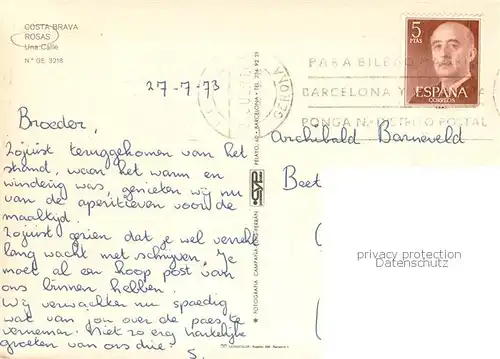 COSTA BRAVA
ROSAS
Una Calle
N.º GE. 3218
27-7-73
5
PTAS
ESPAÑA
CORREOS
GERONA
PARA BILBAO
BARCELONA Y
PONGA N.º DISTRITO POSTAL
Broeder,
Zojuist teruggekomen van het
strand, waar het warm en
winderig was, genieten wij nu
van de aperitieven voor de
maaltijd.
Zojuist gezien dat je wel verrekt
lang wacht met schrijven. Je
moet al een hoop post van
ons binnen hebben.
Wij verwachten nu spoedig
wat van jou over de pacs, te
vernemen. Niet zo erg hartelijke
groeten van ons drie. S.
FOTOGRAFIA CAMPAÑÁ PUIG-FERRÁN
CYP
PELAYO, 60 - BARCELONA - TEL. 256 92 21
Archibald Barneveld
Beet
privacy protection
www.ansichtskarten-center.de